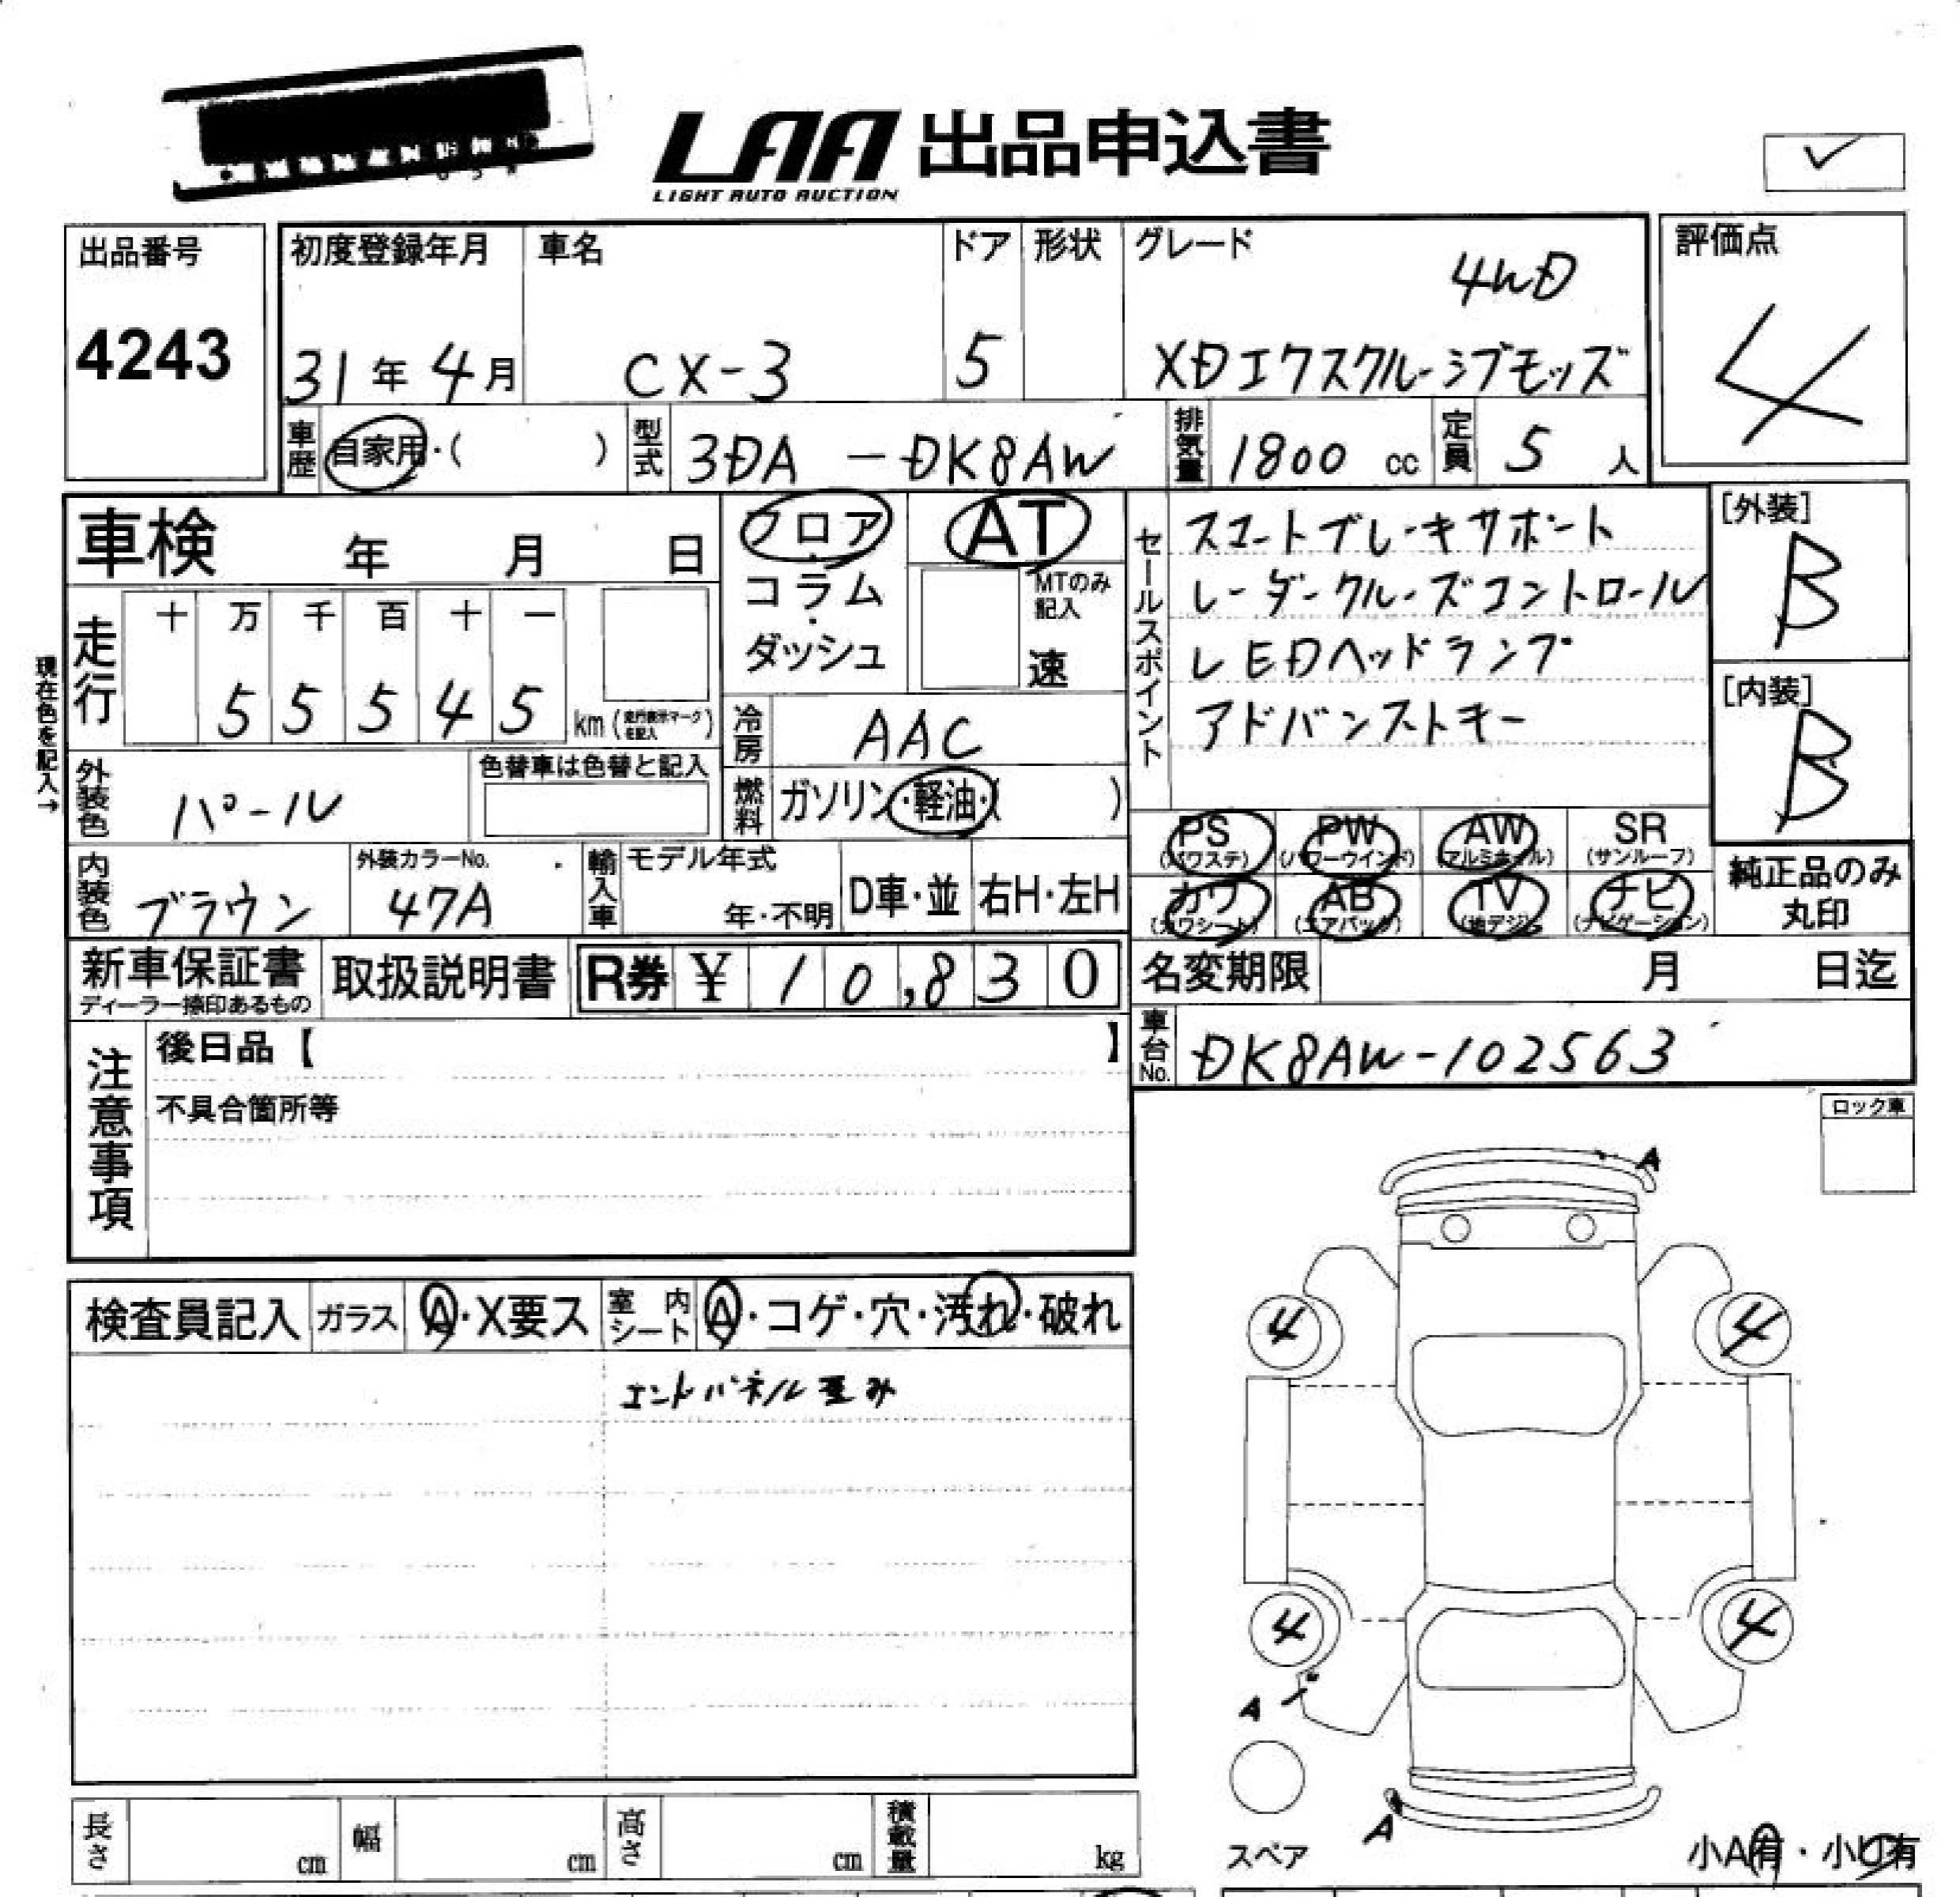 LAA 出品申込書
LIGHT AUTO AUCTION
出品番号
4243
初度登録年月
31年 4月
車名
CX-3
ドア
5
形状
グレード
4WD
XDエクスクルーシブモッズ
評価点
4
車歴 自家用・( )
型式 3DA -DK8AW
排気量 1800 cc
定員 5 人
車検 年 月 日
フロア・コラム・ダッシュ
AT
MTのみ記入
速
セールスポイント
スマートブレーキサポート
レーダークルーズコントロール
LEDヘッドランプ
アドバンストキー
[外装]
B
[内装]
B
現在色を記入→
走行
十 万 千 百 十 一
5 5 5 4 5 km (走行表示マークを記入)
冷房 AAC
燃料 ガソリン・軽油・( )
外装色 パール
色替車は色替と記入
内装色 ブラウン
外装カラーNo.
47A
輸入車
モデル年式
年・不明
D車・並
右H・左H
PS (パワステ)
PW (パワーウインド)
AW (アルミホイル)
SR (サンルーフ)
カワ (カワシート)
AB (エアバック)
TV (地デジ)
ナビ (ナビゲーション)
純正品のみ
丸印
新車保証書
ディーラー捺印あるもの
取扱説明書
R券 ¥ 10,830
名変期限 月 日迄
車台No. DK8AW-102563
注意事項
後日品【 】
不具合箇所等
ロック車
検査員記入
ガラス A・X要ス
室内シート A・コゲ・穴・汚れ・破れ
パネル歪み
A
4
4
4
4
A
A
スペア
小A有・小U有
長さ cm
幅 cm
高さ cm
積載量 kg